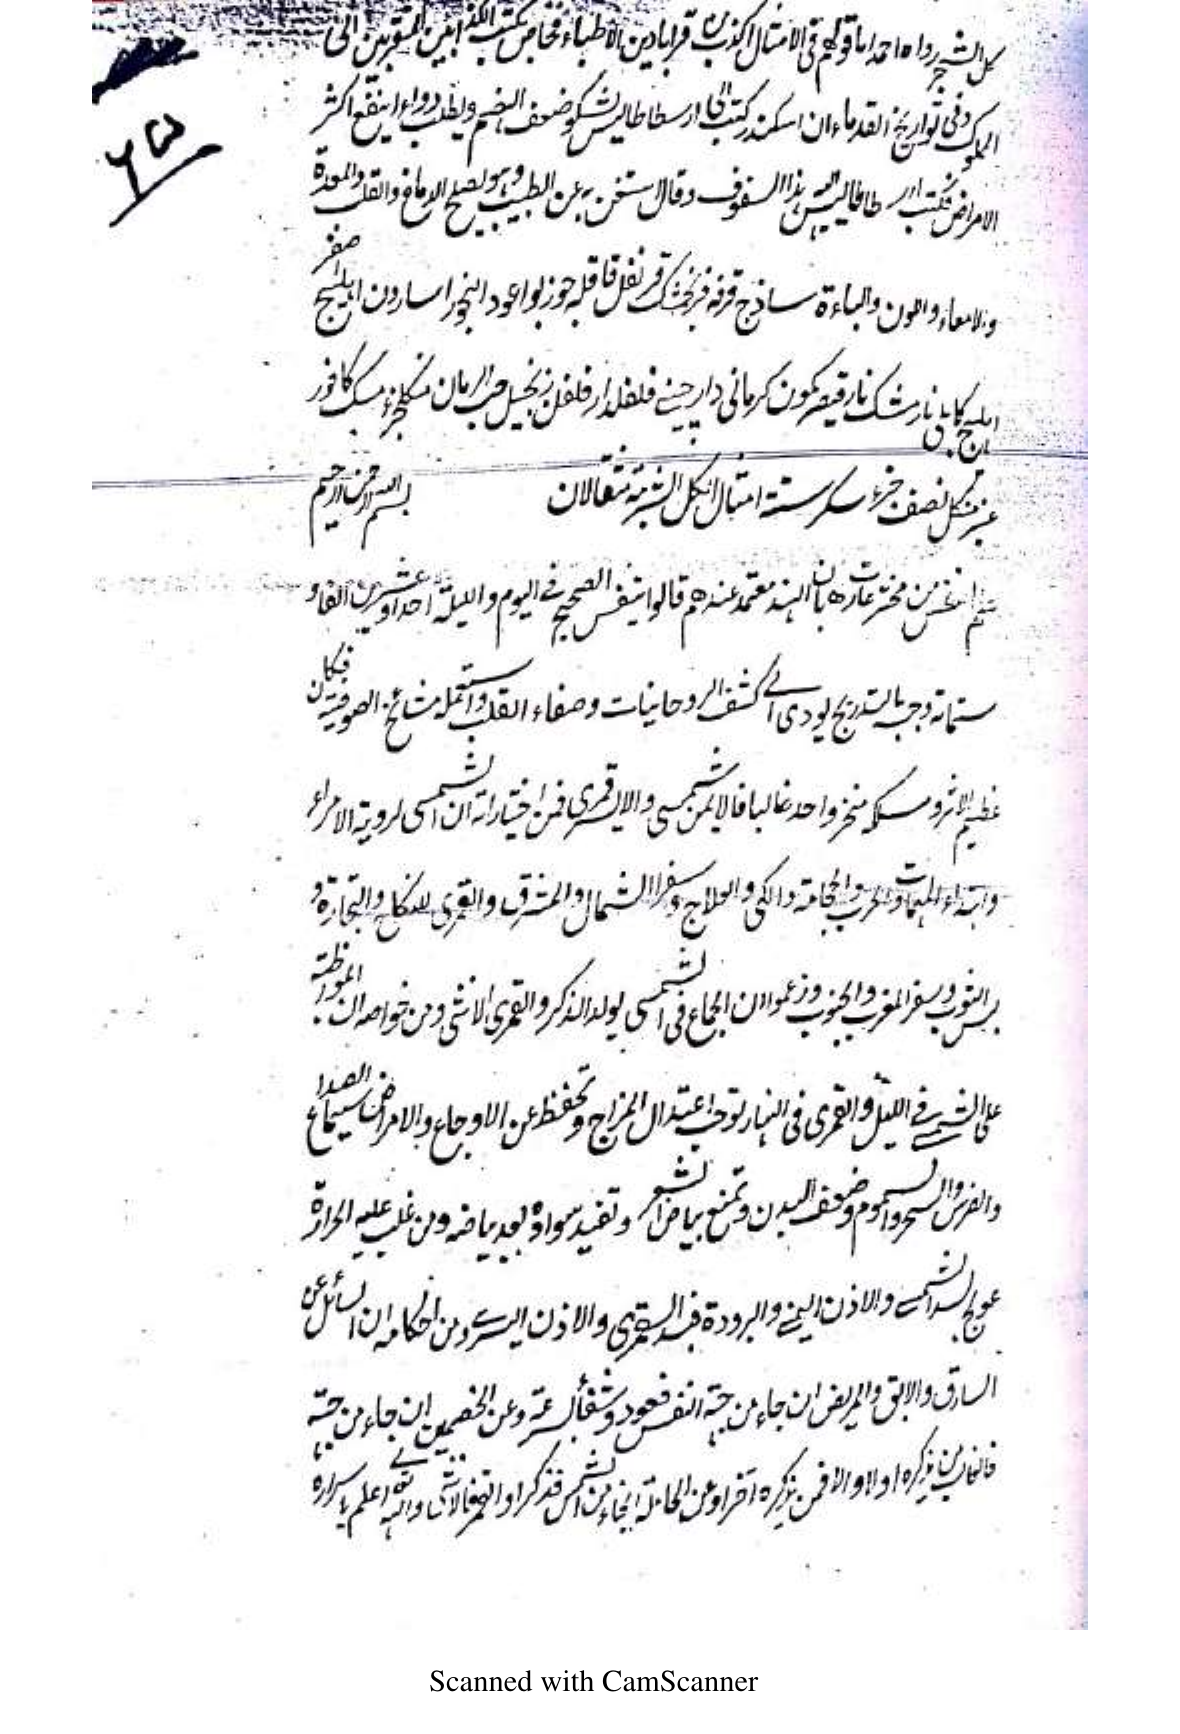 كل الشجر رواه احمد اما قولهم فى الامثال اكذب من قرابادين الاطباء فخاص بكتب الكذابين المتقربين الى
الملوك وفى تواريخ القدماء ان اسكندر كتب الى ارسطاطاليس يشكو ضعف الهضم ويطلب دواء ينفع اكثر
الامراض فكتب ارسطاطاليس اليه هذا السفوف وقال استغن به عن الطبيب وهو يصلح الدماغ والقلب والمعدة
والامعاء واللون والباءة ساذج قرفة فرنجمشك قرنفل قاقله جوزبوا عود البخور اسارون اهليلج اصفر
اهليلج كابلى نارمشك نارقيصر كمون كرمانى دارچينے فلفل دارفلفل زنجبيل حب الرمان من كل جزء مسك كافور
عنبر من كل نصف جزء سكر ستة امثال الكل الشربة مثقالان بسم الله الرحمن الرحيم
علم النفس من مخترعات رهبان الهند معتمد عندهم قالوا يتنفس الصحيح فى اليوم والليلة احدا وعشرين الفا و
ستمائة وحبسه بالتدريج يودى الے كشف الروحانيات وصفاء القلب واستعمله مشائخ الصوفية فكان
عظيم الاثر ومسلكه منخر واحد غالبا فالايمن شمسى والايسر قمرى فمن اختياراته ان الشمسى لروية الامراء
وابتداء المهمات والحرب والحجامة والكى والعلاج وسفر الشمال والمشرق والقمرى للنكاح والتجارة و
لبس الثوب وسفر المغرب والجنوب وزعموا ان الجماع فى الشمسى يولد الذكر والقمرى الانثى ومن خواصه ان المواظبة
على الشمسے فى الليل والقمرى فى النهار توجب اعتدال المزاج وتحفظ عن الاوجاع والامراض سيما الصداع
والضرس والسحر والسموم وضعف البدن وتمنع بياض الشعر وتفيد سواده بعد بياضه ومن غلب عليه الحرارة
عولج بسد الشمسے والاذن اليمنے والبرودة فبسد القمرى والاذن اليسرے ومن احكامه ان السائل عن
السارق والابق والمريض ان جاء من جهة النفس فعود وشفاء بسرعة وعن الخصمين ان جاء من جهته
فالغالب من يذكره اولا والا فمن يذكره آخرا وعن الحاملة ان جاء من الشمس فذكر او القمر فالانثى والله تعالے اعلم باسراره
Scanned with CamScanner